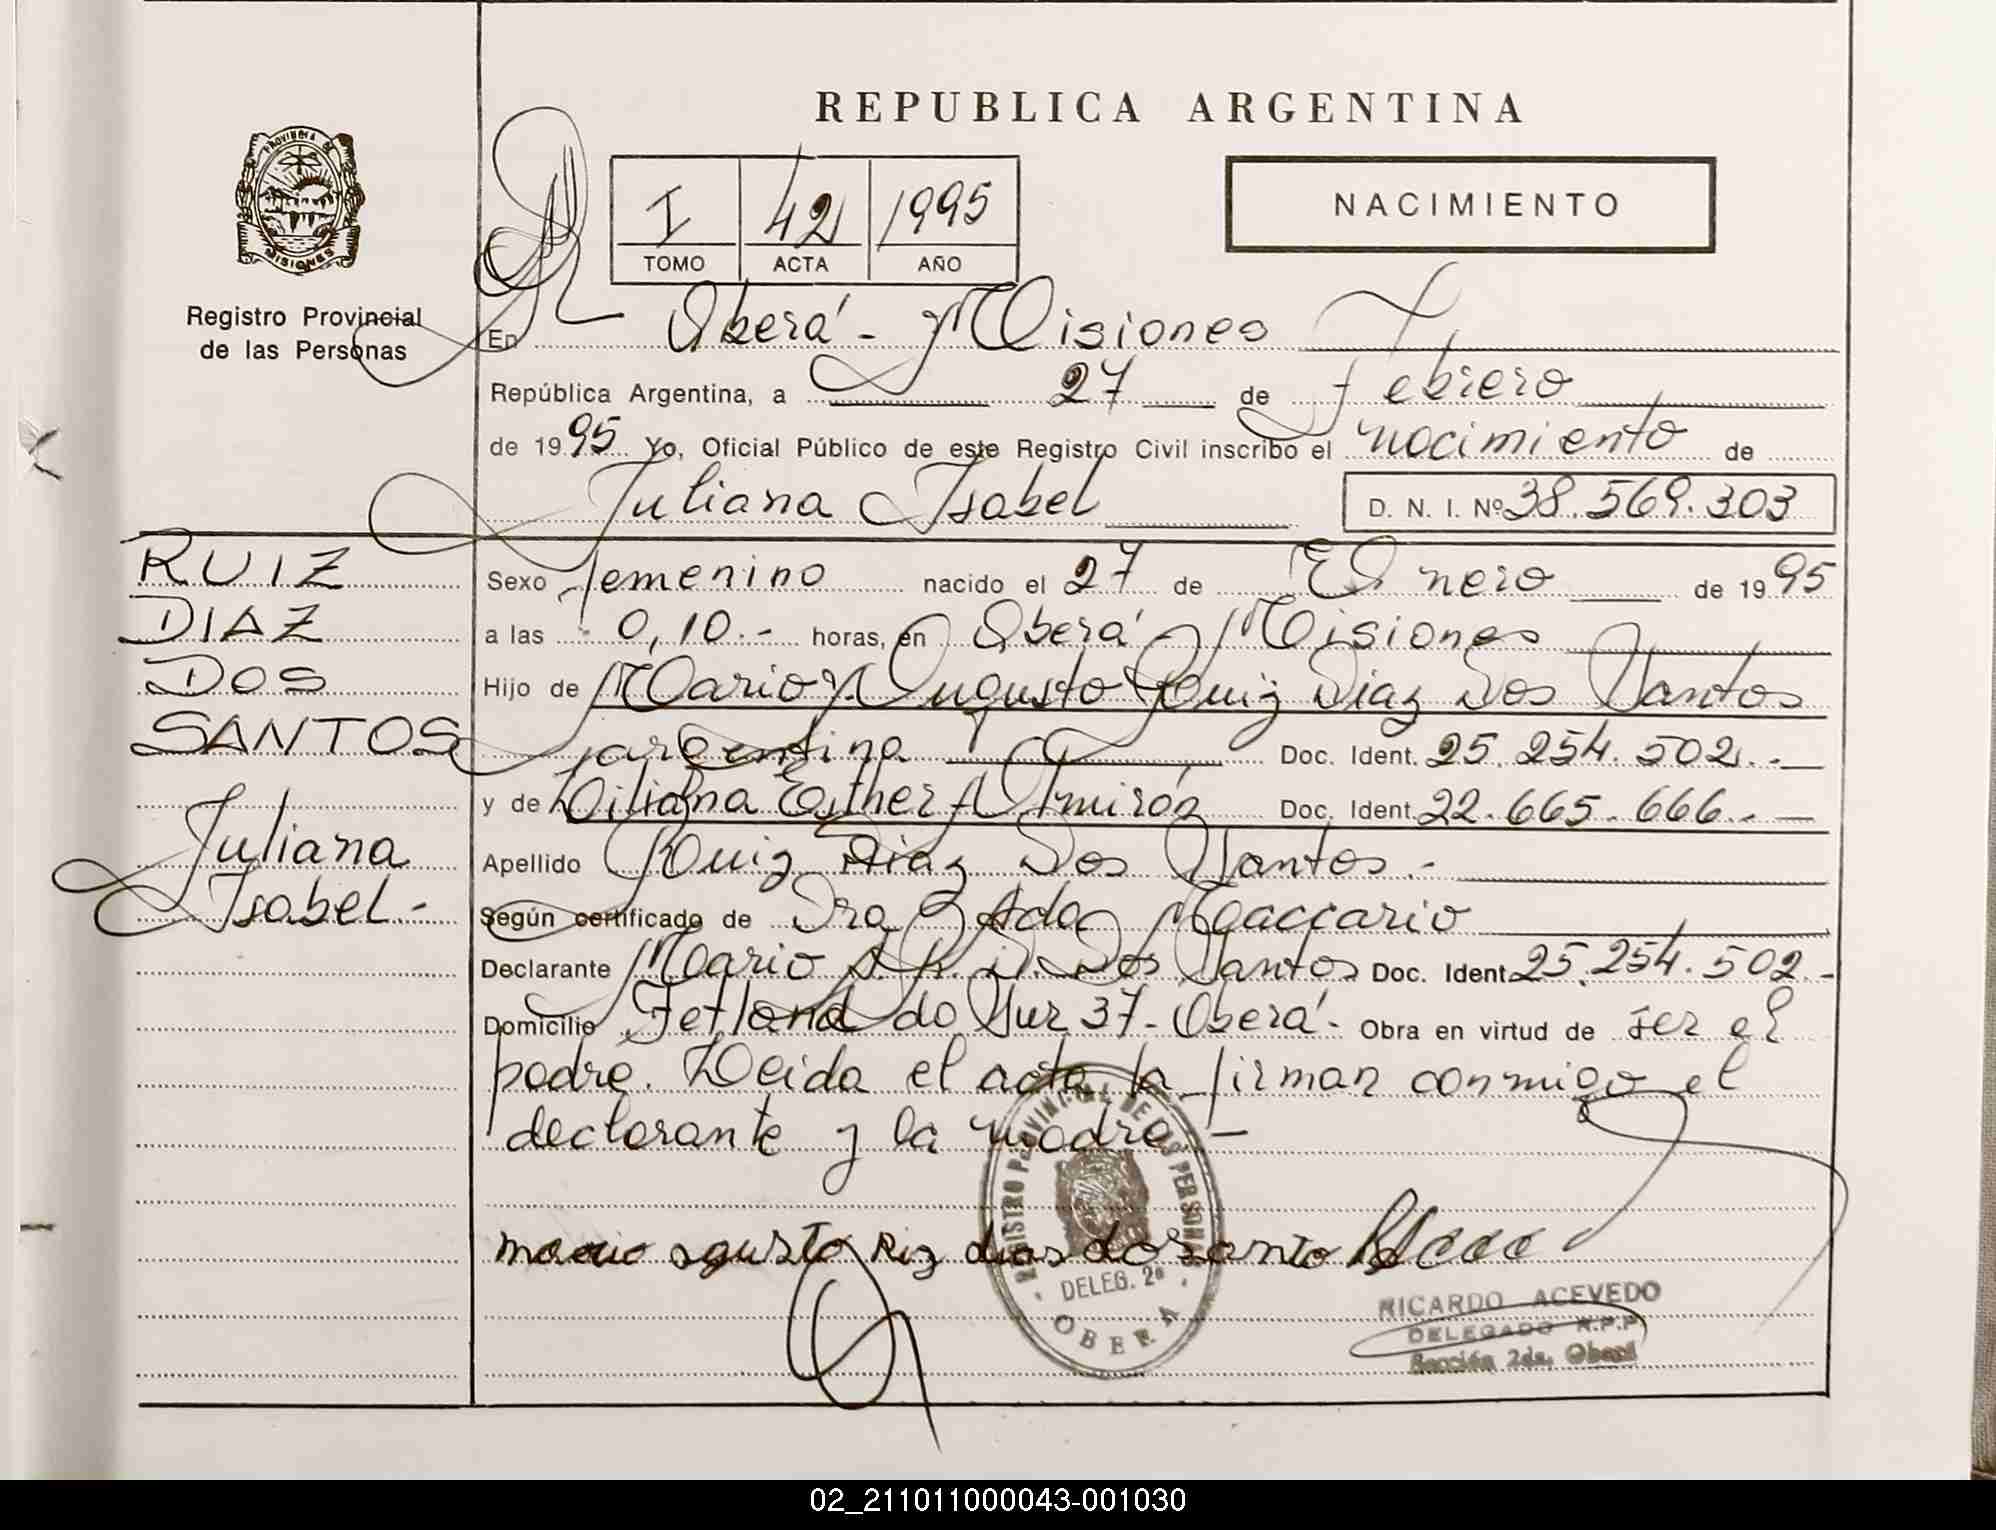 REPUBLICA ARGENTINA
PROVINCIA DE
MISIONES
Registro Provincial
de las Personas
I 42 1995
TOMO ACTA AÑO
NACIMIENTO
En Oberá - Misiones
República Argentina, a 27 de Febrero
de 1995 Yo, Oficial Público de este Registro Civil inscribo el nacimiento de
Juliana Isabel D. N. I. Nº 38.569.303
RUIZ
DIAZ
DOS
SANTOS
Juliana
Isabel.-
Sexo femenino nacido el 27 de Enero de 1995
a las 0,10.- horas, en Oberá - Misiones
Hijo de Mario Augusto Ruiz Diaz Dos Santos
argentina Doc. Ident. 25.254.502.-
y de Liliana Esther Almirón Doc. Ident. 22.665.666.-
Apellido Ruiz Diaz Dos Santos.-
Según certificado de Dra Ada Maccario
Declarante Mario A. R. D. Dos Santos Doc. Ident. 25.254.502.-
Domicilio Fetland do Sur 37- Oberá.- Obra en virtud de ser el
padre. Leida el acta la firman conmigo el
declarante y la madre.-
mario agusto Riz dias do santo
REGISTRO PROVINCIAL DE LAS PERSONAS
DELEG. 2ª
OBERA
RICARDO ACEVEDO
DELEGADO R.P.P
Sección 2da. Oberá
02_211011000043-001030